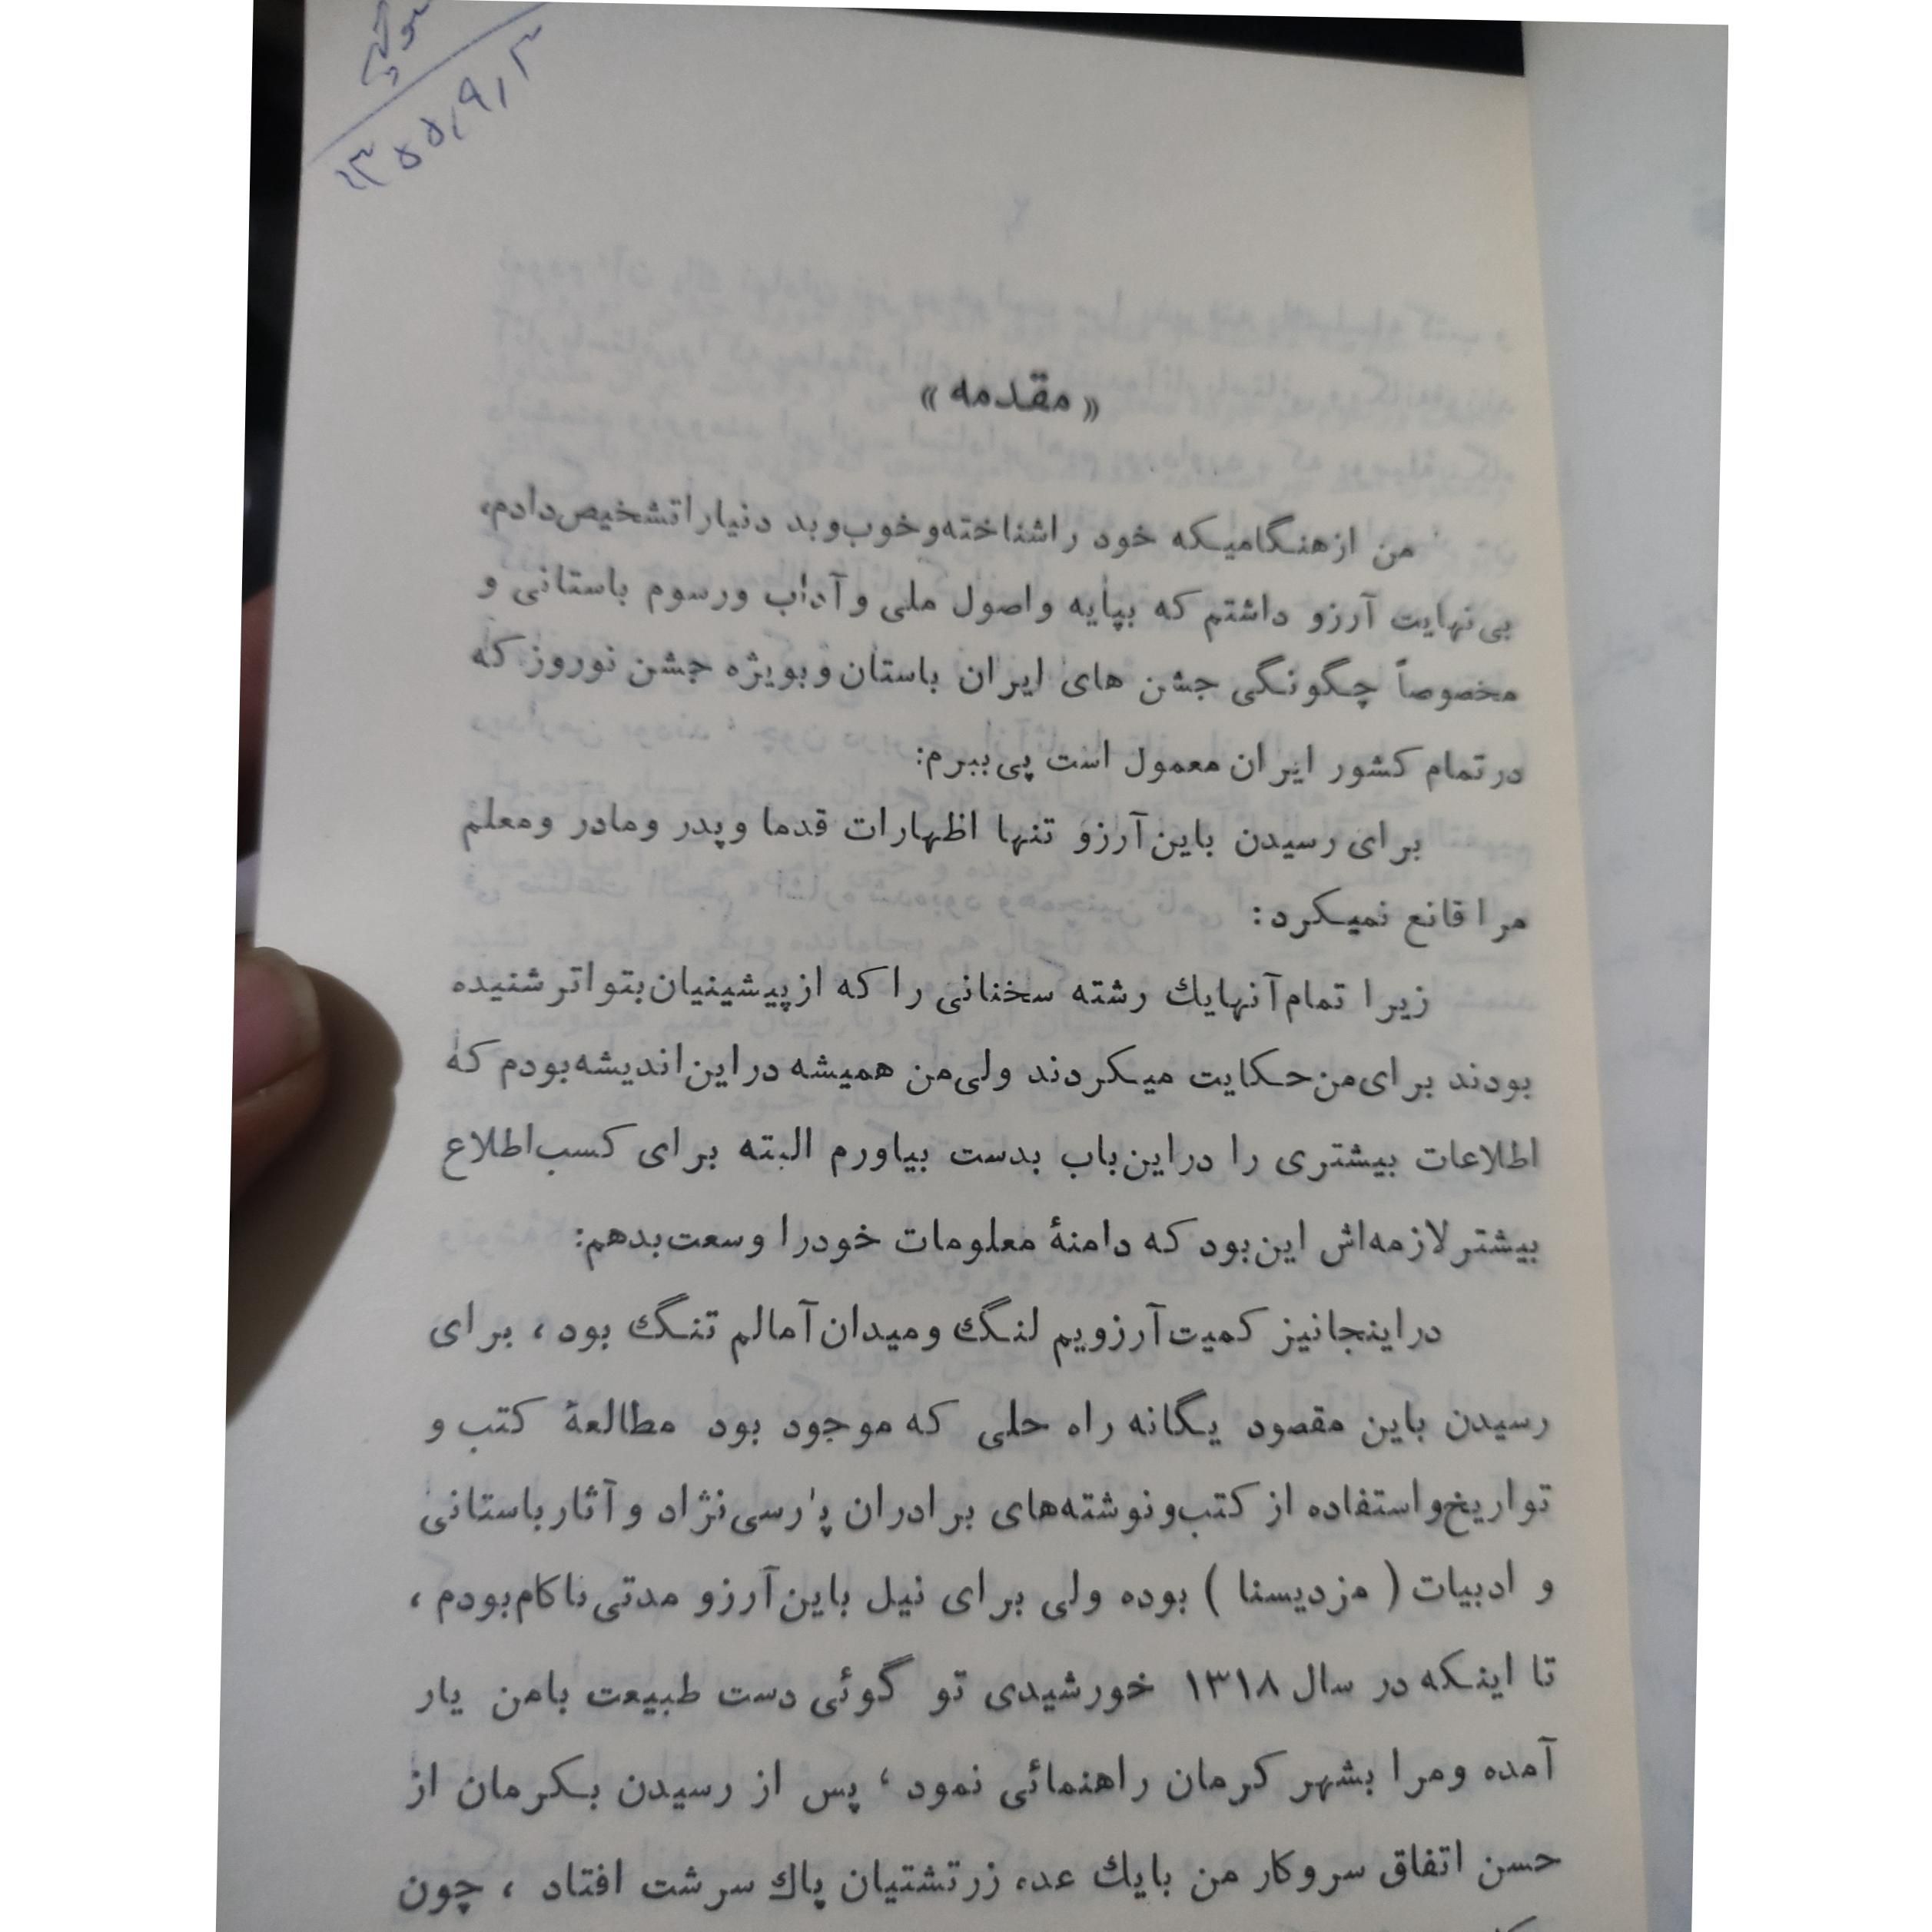 ۱۳۵۵/۹/۳
« مقدمه »
من ازهنگامیکه خود راشناخته‌وخوب‌وبد دنیاراتشخیص‌دادم،
بی‌نهایت آرزو داشتم که بپایه واصول ملی وآداب ورسوم باستانی و
مخصوصاً چگونگی جشن های ایران باستان‌وبویژه جشن نوروز که
درتمام کشور ایران معمول است پی‌ببرم:
برای رسیدن باین‌آرزو تنها اظهارات قدما وپدر ومادر ومعلم
مرا قانع نمیکرد:
زیرا تمام‌آنهایك رشته سخنانی را که ازپیشینیان‌بتواتر شنیده
بودند برای‌من‌حکایت میکردند ولی‌من همیشه دراین‌اندیشه‌بودم که
اطلاعات بیشتری را دراین‌باب بدست بیاورم البته برای کسب‌اطلاع
بیشترلازمه‌اش این‌بود که دامنهٔ معلومات خودرا وسعت‌بدهم:
دراینجانیز کمیت‌آرزویم لنگ ومیدان‌آمالم تنگ بود ، برای
رسیدن باین مقصود یگانه راه حلی که موجود بود مطالعهٔ کتب و
تواریخ‌واستفاده از کتب‌ونوشته‌های برادران پارسی‌نژاد وآثارباستانی
و ادبیات ( مزدیسنا ) بوده ولی برای نیل باین‌آرزو مدتی‌ناکام‌بودم ،
تا اینکه در سال ۱۳۱۸ خورشیدی تو گوئی دست طبیعت بامن یار
آمده ومرا بشهر کرمان راهنمائی نمود ، پس از رسیدن بکرمان از
حسن اتفاق سروکار من بایك عده زرتشتیان پاك سرشت افتاد ، چون